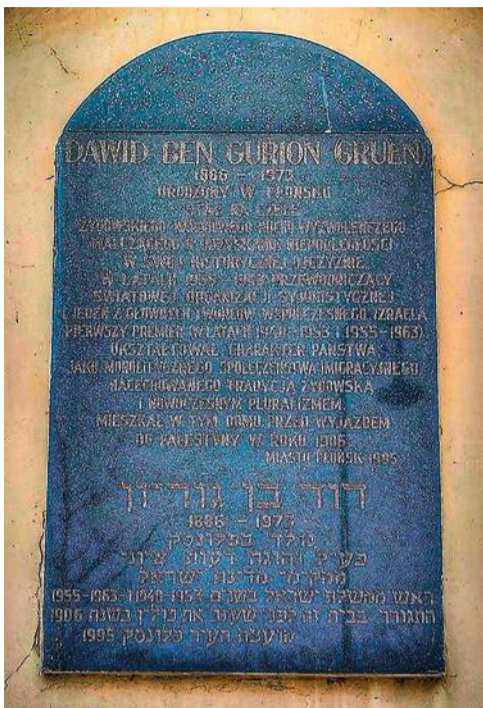 DAWID BEN GURION (GRUEN)
1886 – 1973
URODZONY W PŁOŃSKU
STAŁ NA CZELE
ŻYDOWSKIEGO NARODOWEGO RUCHU WYZWOLEŃCZEGO
WALCZĄCEGO O UZYSKANIE NIEPODLEGŁOŚCI
W SWEJ HISTORYCZNEJ OJCZYŹNIE.
W LATACH 1935 – PRZEWODNICZĄCY
ŚWIATOWEJ ORGANIZACJI SYJONISTYCZNEJ
I JEDEN Z GŁÓWNYCH TWÓRCÓW WSPÓŁCZESNEGO IZRAELA
PIERWSZY PREMIER (W LATACH 1948–1953 I 1955–1963).
UKSZTAŁTOWAŁ CHARAKTER PAŃSTWA,
JAKO SPOŁECZEŃSTWA IMIGRACYJNEGO
NACECHOWANEGO TRADYCJĄ ŻYDOWSKĄ
I NOWOCZESNYM PLURALIZMEM.
MIESZKAŁ W TYM DOMU PRZED WYJAZDEM
DO PALESTYNY W ROKU 1906.
MIASTO PŁOŃSK 1995
דוד בן גוריון
1886 – 1973
נולד בפלונסק
והוגה דעות ציוני
מדינת ישראל
ראש ממשלת ישראל בשנים 1953-1948 ו-1963-1955
התגורר בבית זה לפני שעזב את פולין בשנת 1906
העיר פלונסק 1995